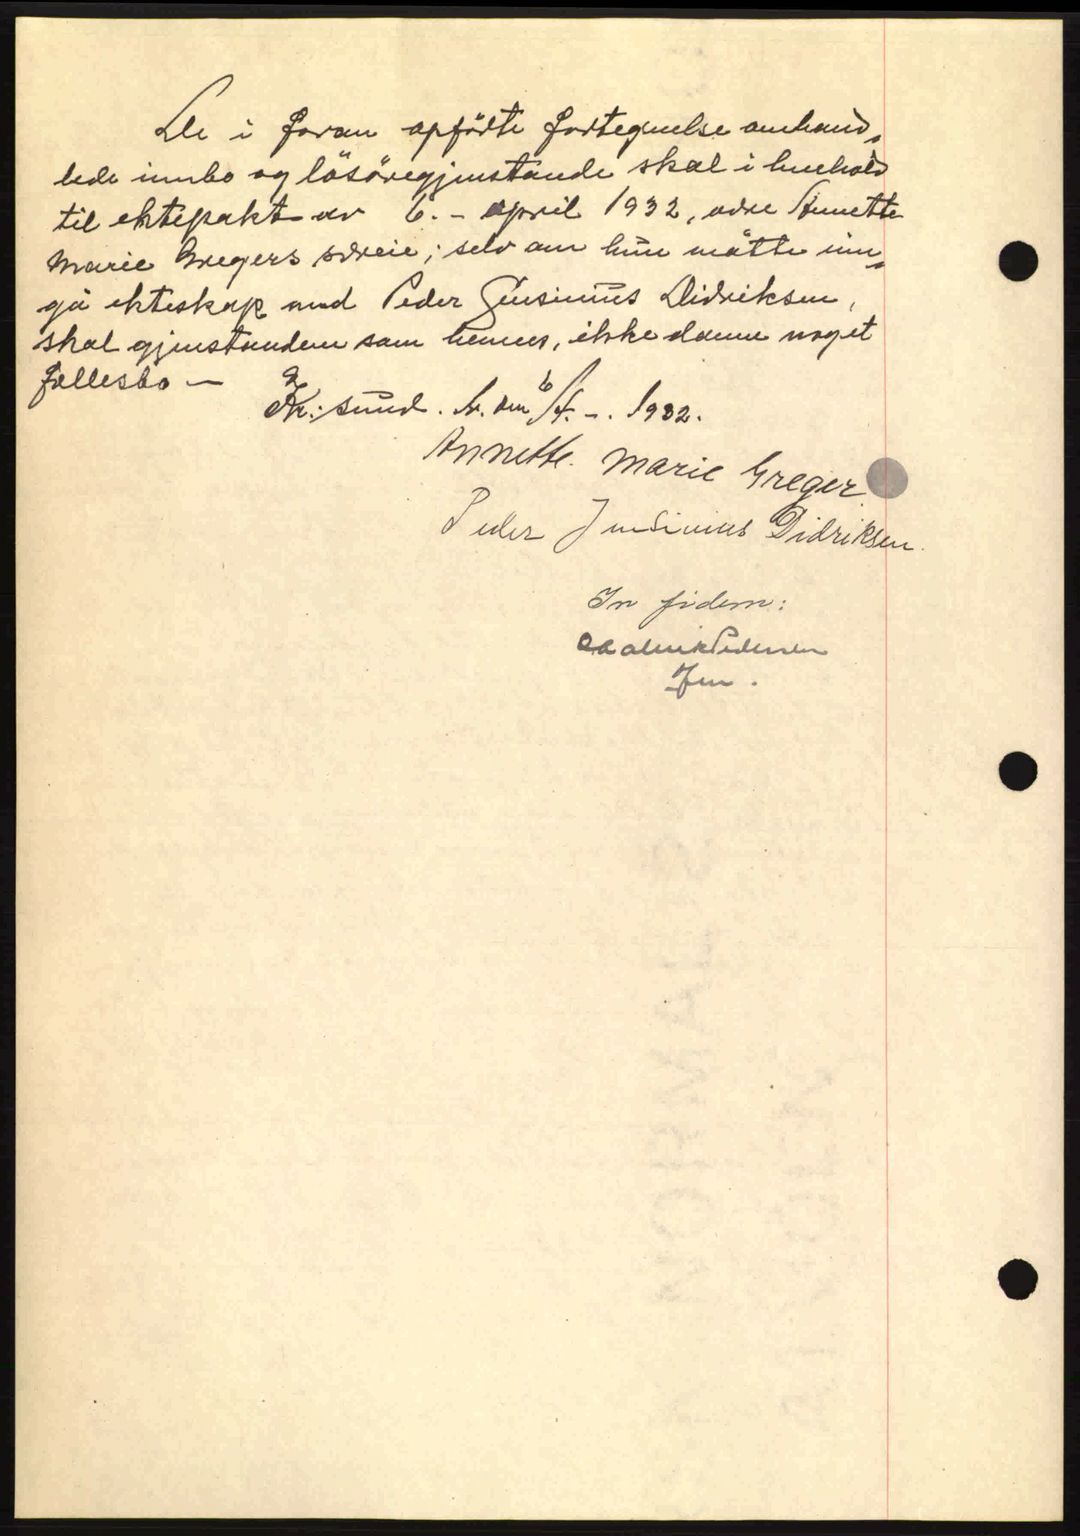 De i foran opförte fortegnelse omhand-
lede innbo og lösöregjenstande skal i henhold
til ektepakt av 6. - april 1932, være Annette
Marie Gregers særeie; selv om hun måtte inn-
gå ekteskap med Peder Jensinius Didriksen,
skal gjenstanden som hennes, ikke danne noget
fællesbo —
Kr.sund. N. den 6/4. - . 1932.
Annette. Marie Greger
Peder Jensinius Didriksen.
In fidem:
Pedersen